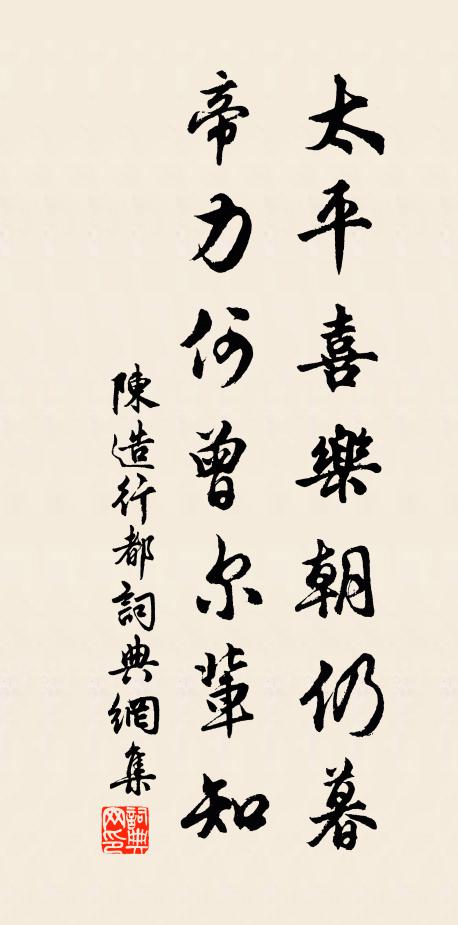 太平喜樂朝仍暮
帝力何曾尔輩知
陳造行都詞典網集
詞典网印